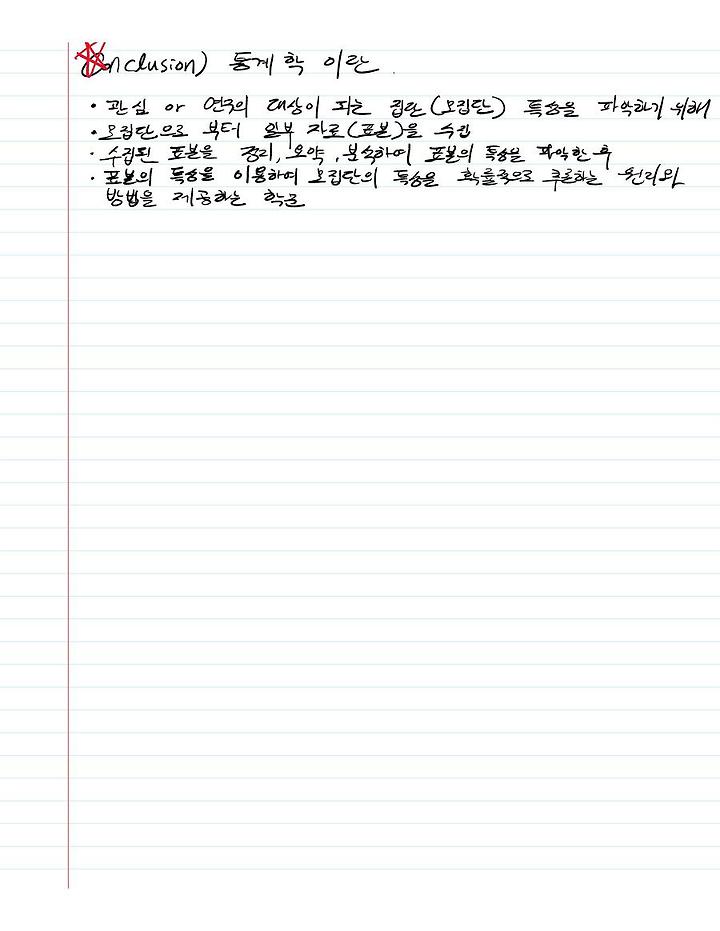 Conclusion) 통계학 이란
· 관심 or 연구의 대상이 되는 집단(모집단) 특성을 파악하기 위해
· 모집단으로 부터 일부 자료(표본)을 수집
· 수집된 표본을 정리, 요약, 분석하여 표본의 특성을 파악한 후
· 표본의 특성을 이용하여 모집단의 특성을 확률적으로 추론하는 원리와
방법을 제공하는 학문